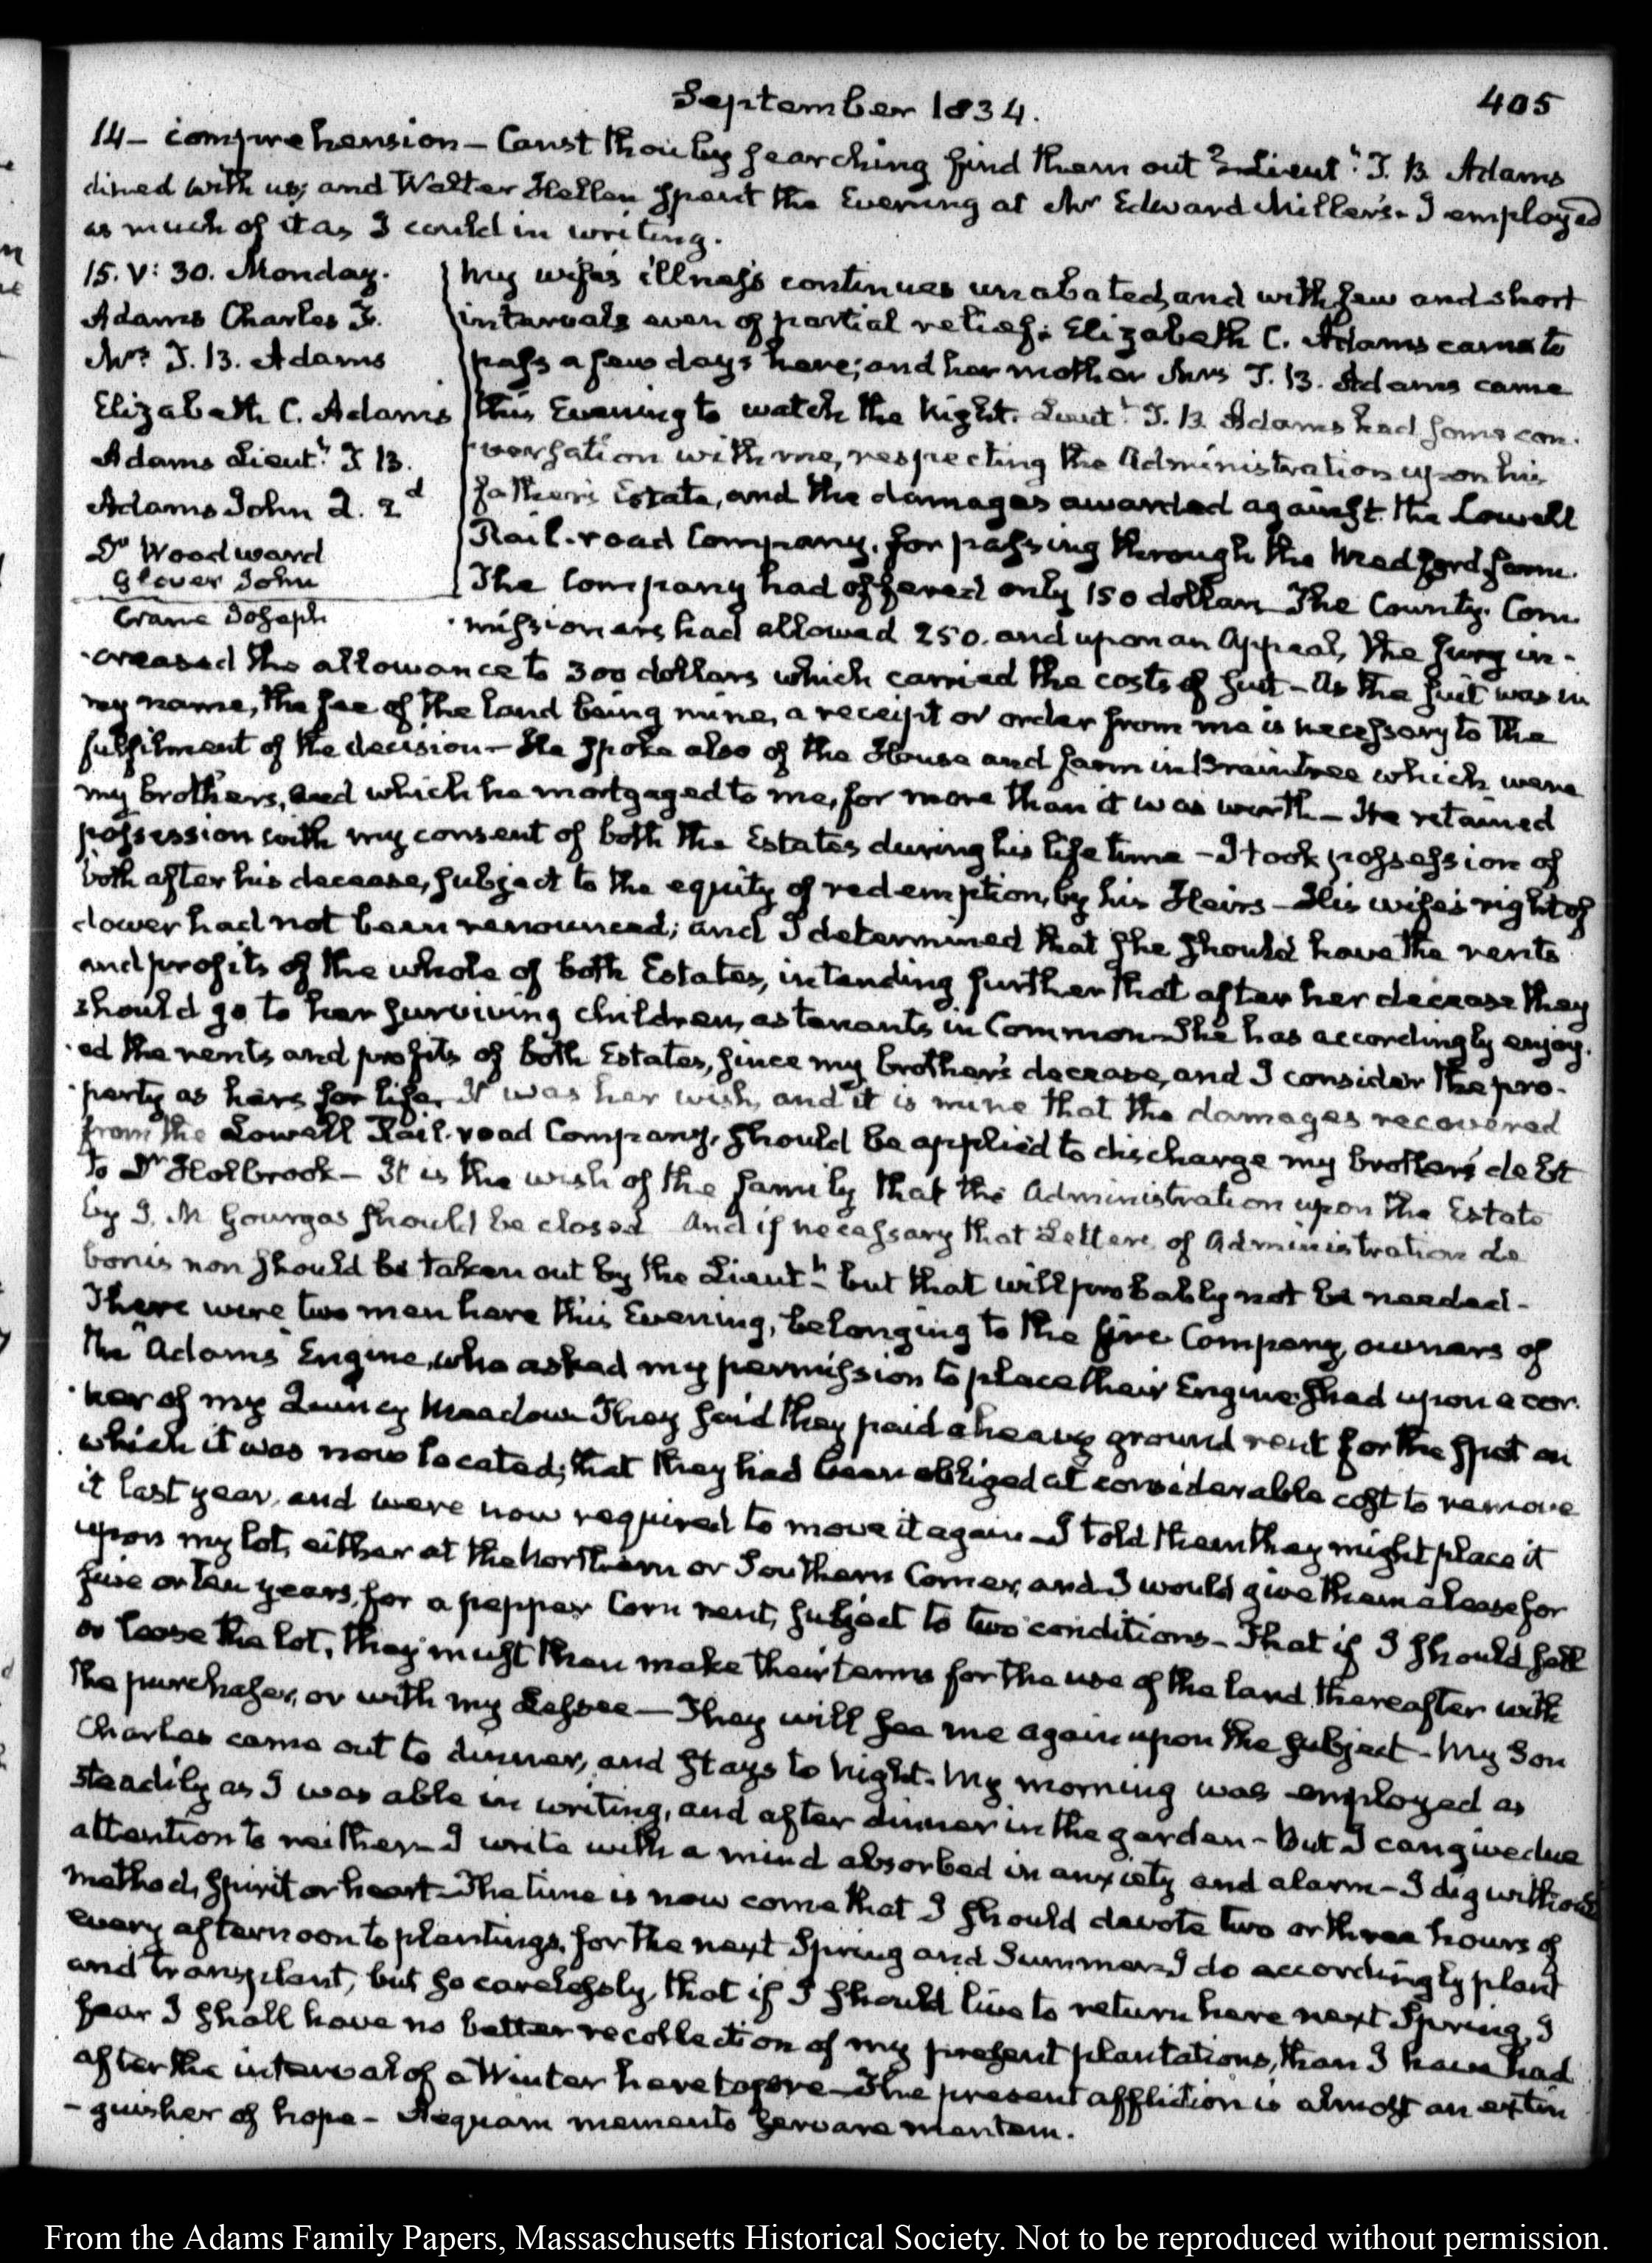 September 1834.
405
14– comprehension – Canst thou by searching find them out? Lieutt. T. B. Adams
dined with us; and Walter Hellen spent the Evening at Mr Edward Miller's – I employed
as much of it as I could in writing.
15. V: 30. Monday.
Adams Charles F.
Mrs T. B. Adams
Elizabeth C. Adams
Adams Lieutt. T. B.
Adams John Q. 2d
Dr Woodward
Glover John
Crane Joseph
My wife's illness continues unabated, and with few and short
intervals even of partial relief. Elizabeth C. Adams came to
pass a few days here; and her mother Mrs T. B. Adams came
this Evening to watch the Night. Lieutt. T. B. Adams had some con-
-versation with me, respecting the Administration upon his
father's Estate, and the damages awarded against the Lowell
Rail-road Company, for passing through the Medford farm.
The Company had offered only 150 dollars – The County Com-
-missioners had allowed 250. and upon an Appeal, the Jury in-
-creased the allowance to 300 dollars which carried the costs of suit – As the suit was in
my name, the fee of the land being mine, a receipt or order from me is necessary to the
fulfilment of the decision – He spoke also of the House and farm in Braintree which were
my brother's, and which he mortgaged to me, for more than it was worth – He retained
possession with my consent of both the Estates during his life time – I took possession of
both after his decease, subject to the equity of redemption, by his Heirs – His wife's right of
dower had not been renounced; and I determined that she should have the rents
and profits of the whole of both Estates, intending further that after her decease they
should go to her surviving children, as tenants in Common – She has accordingly enjoy-
-ed the rents and profits of both Estates, since my brother's decease, and I consider the pro-
-perty as hers for life. It was her wish, and it is mine that the damages recovered
from the Lowell Rail-road Company, should be applied to discharge my brother's debt
to Dr Holbrook – It is the wish of the family that the Administration upon the Estate
by J. M. Gourgas should be closed And if necessary that Letters of Administration de
bonis non should be taken out by the Lieutt. but that will probably not be needed –
There were two men here this Evening, belonging to the fire Company, owners of
the "Adams" Engine, who asked my permission to place their Engine shed upon a cor-
-ner of my Quincy Meadow – They said they paid a heavy ground rent for the spot on
which it was now located; that they had been obliged at considerable cost to remove
it last year, and were now required to move it again – I told them they might place it
upon my lot, either at the Northern or Southern Corner, and I would give them a lease for
five or ten years, for a pepper Corn rent, subject to two conditions – That if I should sell
or lease the lot, they must then make their terms for the use of the land thereafter with
the purchaser, or with my Lessee – They will see me again upon the subject – My Son
Charles came out to dinner, and stays to Night. My morning was employed as
steadily as I was able in writing, and after dinner in the garden – But I can give due
attention to neither – I write with a mind absorbed in anxiety and alarm – I dig without
method, spirit or heart – The time is now come that I should devote two or three hours of
every afternoon to plantings, for the next Spring and Summer – I do accordingly plant
and transplant, but so carelessly, that if I should live to return here next Spring, I
fear I shall have no better recollection of my present plantations, than I have had
after the interval of a Winter heretofore – The present affliction is almost an extin
-guisher of hope – Aequam memento servare mentem.
From the Adams Family Papers, Massachusetts Historical Society. Not to be reproduced without permission.